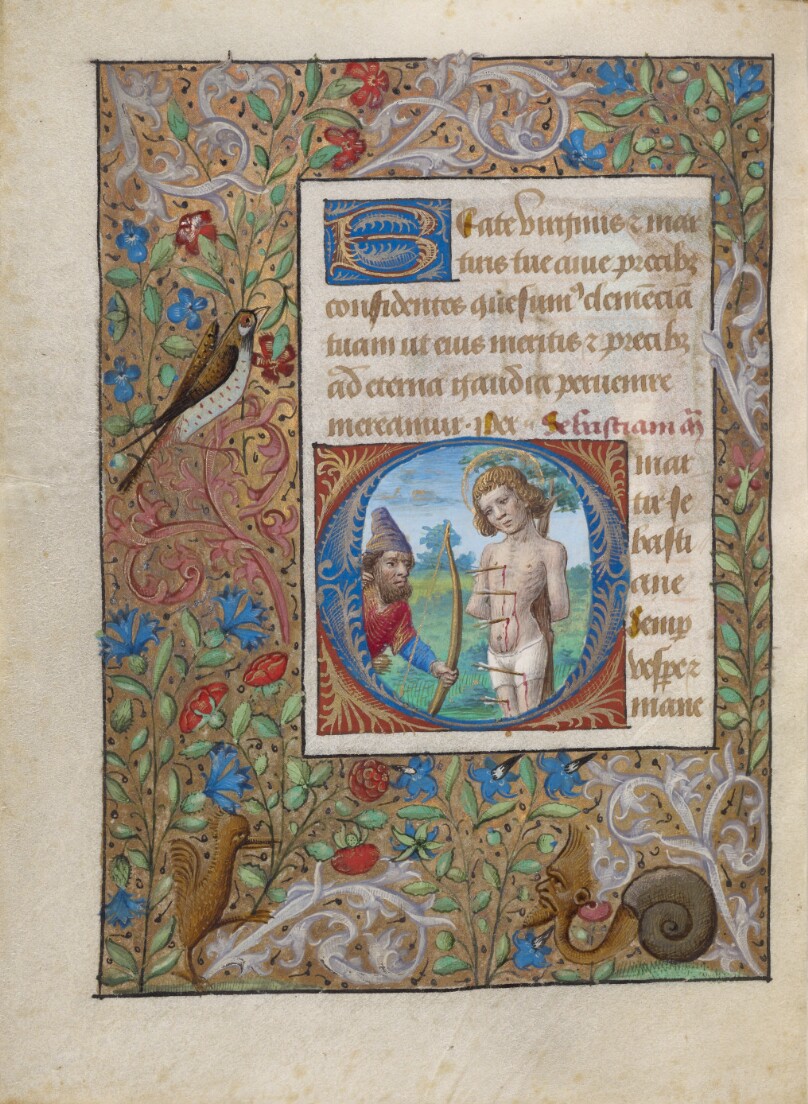 Beate virginis ⁊ mar
tiris tue atque p̱recibꝫ
confidentes quesumꝰ clemēciā
tuam ut eius meritis ⁊ precibꝫ
ad eterna gaudia peruenire
mereamur. Per Sebastiam añ
O mar
tir se
basti
ane
semꝑ
vesꝑe ⁊
mane